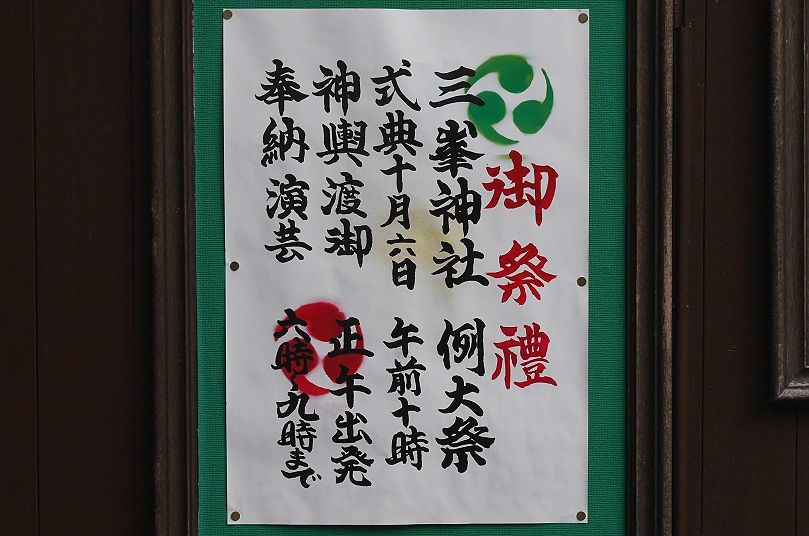 御祭禮
三峯神社 例大祭
式典十月六日 午前十時
神輿渡御 正午出発
奉納演芸 六時〜九時まで